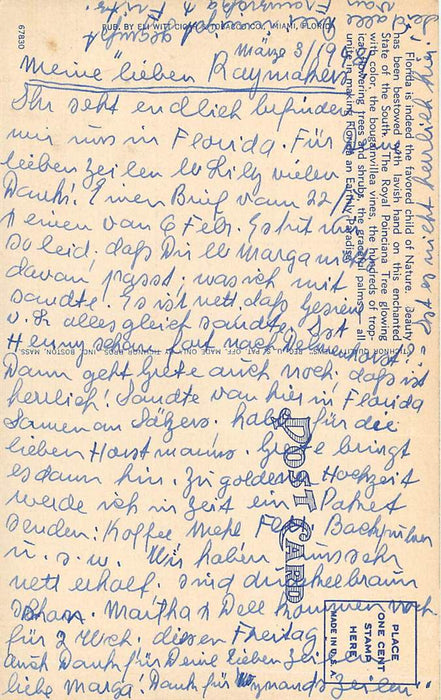 März 3/19
Meine lieben Raymakers
Ihr seht endlich befinden
wir uns in Florida. Für
lieben Zeilen lb Lily vielen
Dank! Einen Brief vom 22/
& einen vom 6 Feb. Es tut mir
so leid. daß Dir lb Marga nichts
davon passt. was ich mit
sandte. Es ist nett daß Gesiena
u. Ih alles gleich sandte. Ist
Henny schon fort nach Delmenhorst.
Dann geht Grete auch noch. daß ist
herrlich! Sandte von hier in Florida
Samen an Sätzers. habe für die
lieben Horstmanns. Grete bringt
es dann hin. Zu golden Hochzeit
werde ich in Zeit ein Paket
senden: Koffee Mehl Backpulver
u. s. w. Wir haben uns sehr
nett erholt. sind dunkelbraun
schon. Martha & Dell kommen noch
für 2 Woch. diesen Freitag.
auch Dank für Deine lieben Zeilen
liebe Marga! Dank für Zeilen.
67830
PUB. BY ELI WITT CIGAR & TOBACCO CO., MIAMI, FLORIDA
Florida is indeed the favored child of Nature. Beauty
has been bestowed with lavish hand on this enchanted
State of the South. The Royal Poinciana Tree glowing
with color, the bougainvillea vines, the hundreds of trop-
ical flowering trees and shrubs, the graceful palms — all
unite in making Florida an Earthly Paradise.
POST CARD
PLACE
ONE CENT
STAMP
HERE
MADE IN U.S.A.